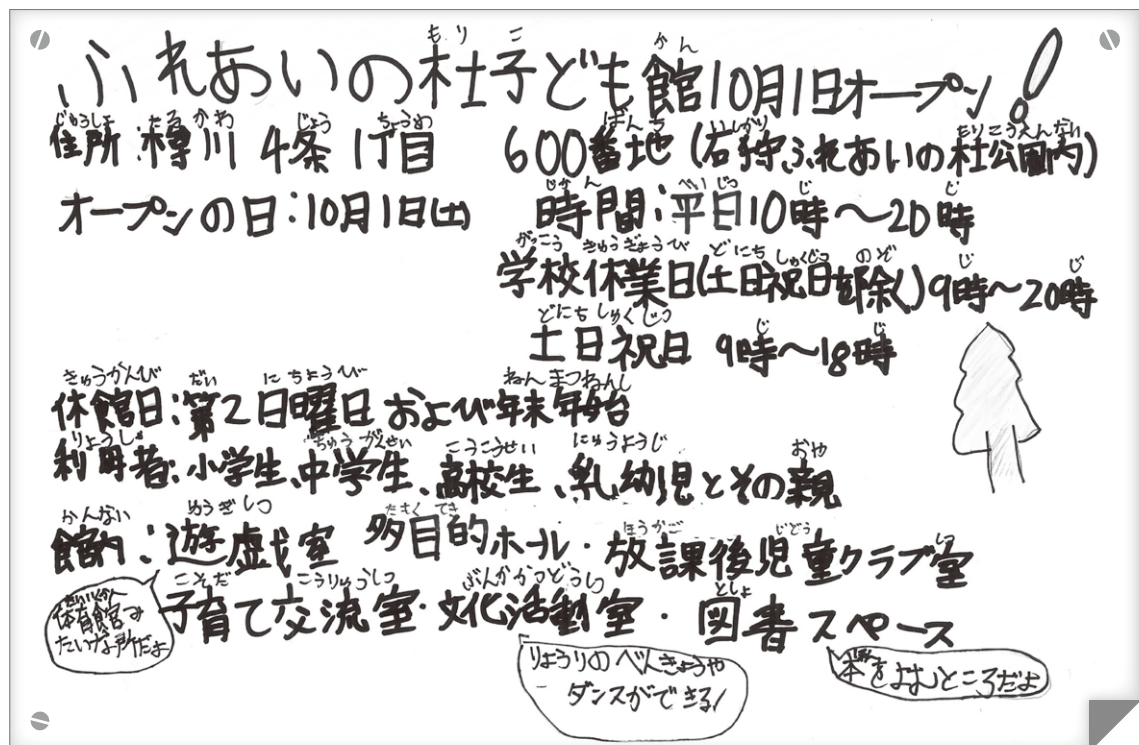 ふれあいの杜子ども館10月1日オープン!
住所:樽川4条1丁目 600番地(石狩ふれあいの杜公園内)
オープンの日:10月1日(土) 時間:平日10時〜20時
学校休業日(土日祝日を除く)9時〜20時
土日祝日 9時〜18時
休館日:第2日曜日および年末年始
利用者:小学生、中学生、高校生、乳幼児とその親
館内:遊戯室 多目的ホール・放課後児童クラブ室
子育て交流室・文化活動室・図書スペース
体育館み
たいな所だよ
りょうりのべんきょうや
ダンスができる!
本をよむところだよ